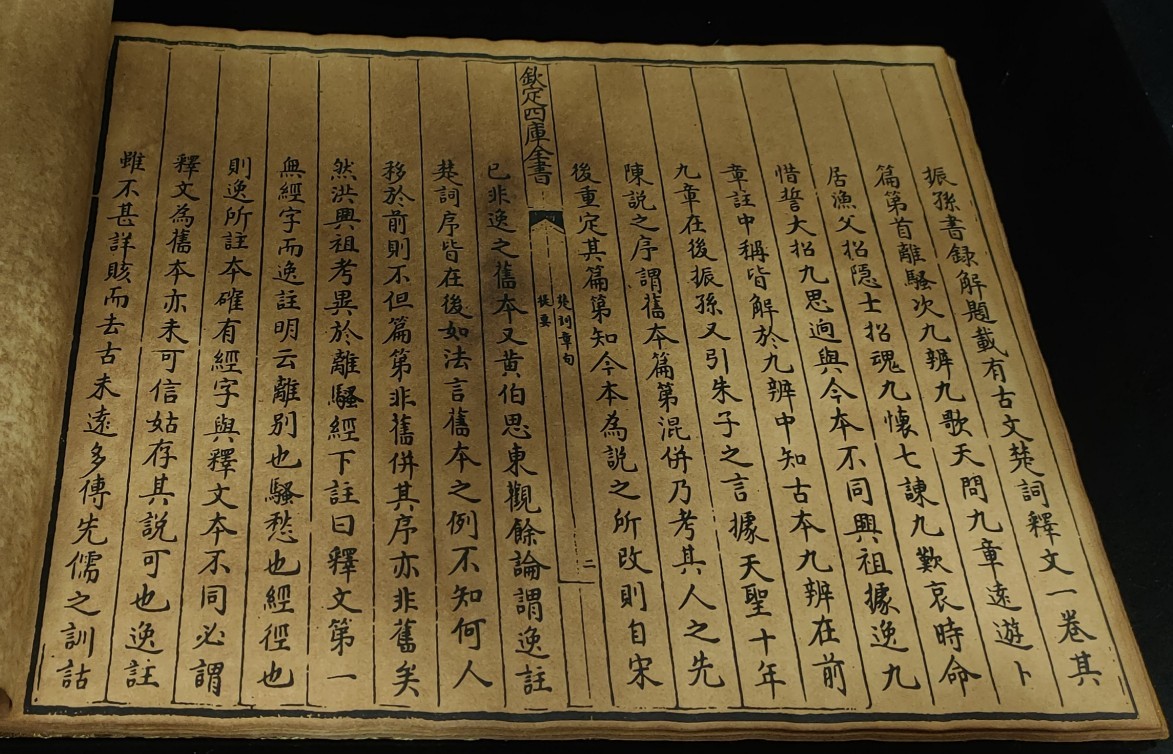 振孫書録解題載有古文楚詞釋文一卷其
篇第首離騷次九辨九歌天問九章遠遊卜
居漁父招隠士招魂九懐七諫九歎哀時命
惜誓大招九思迥與今本不同興祖據逸九
章註中稱皆解於九辨中知古本九辨在前
九章在後振孫又引朱子之言據天聖十年
陳説之序謂舊本篇第混併乃考其人之先
後重定其篇第知今本為説之所改則自宋
欽定四庫全書
楚詞章句
提要
二
已非逸之舊本又黄伯思東觀餘論謂逸註
楚詞序皆在後如法言舊本之例不知何人
移於前則不但篇第非舊併其序亦非舊矣
然洪興祖考異於離騷經下註曰釋文第一
無經字而逸註明云離别也騷愁也經徑也
則逸所註本確有經字與釋文本不同必謂
釋文為舊本亦未可信姑存其説可也逸註
雖不甚詳賅而去古未遠多傳先儒之訓詁